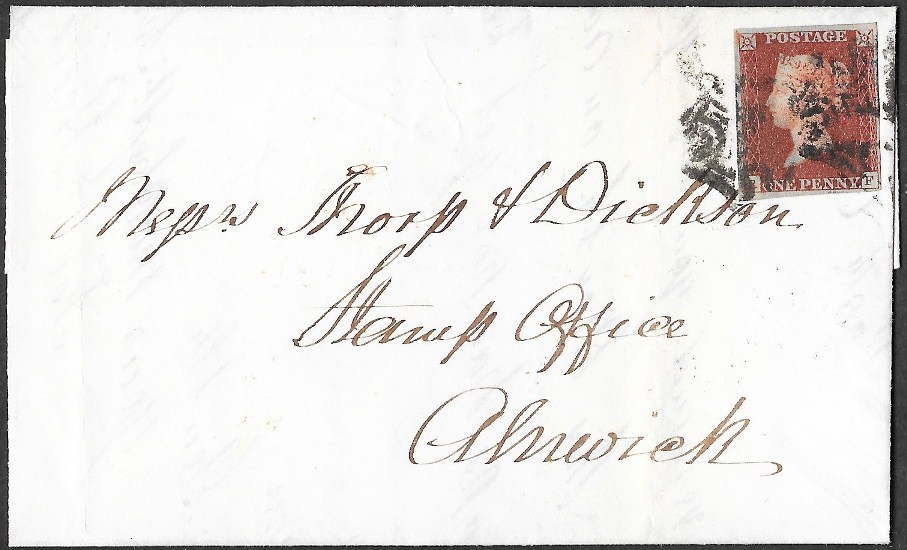 POSTAGE
ONE PENNY F
Messrs Thorp & Dickson
Stamp Office
Alnwick